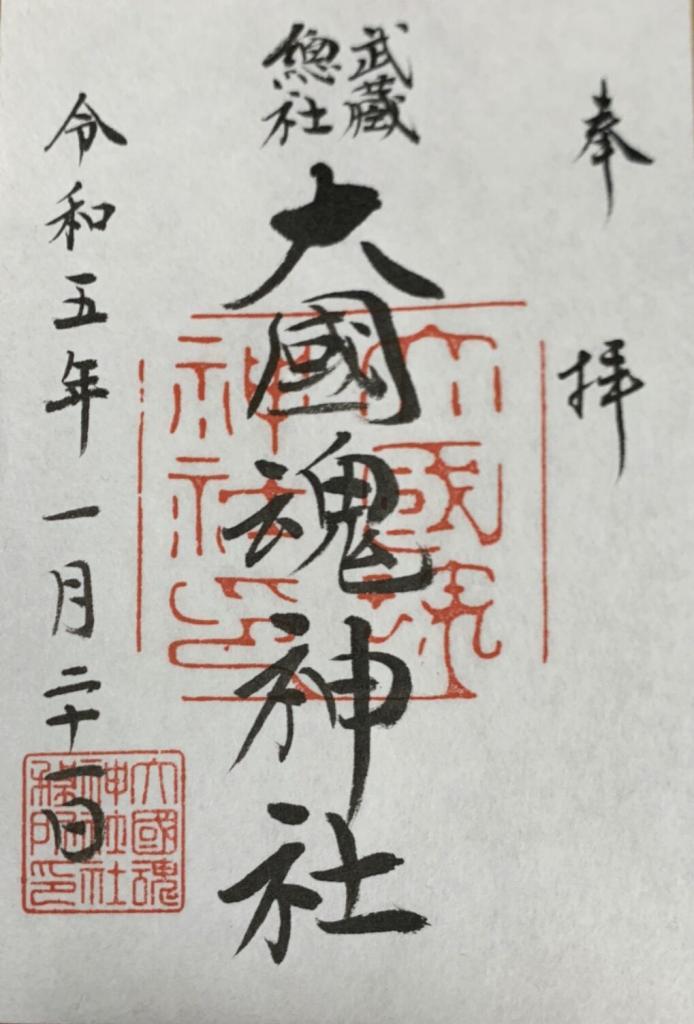 奉拝
武蔵
總社
大國魂神社
令和五年一月二十一日
大國魂
神社印
大國魂
神社社
務所印